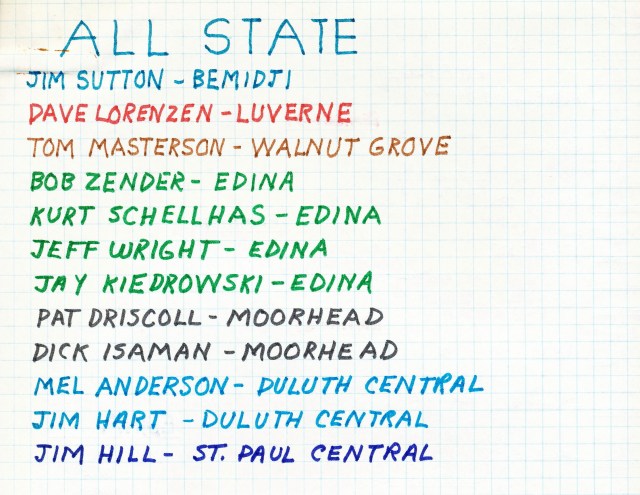 ALL STATE
JIM SUTTON - BEMIDJI
DAVE LORENZEN - LUVERNE
TOM MASTERSON - WALNUT GROVE
BOB ZENDER - EDINA
KURT SCHELLHAS - EDINA
JEFF WRIGHT - EDINA
JAY KIEDROWSKI - EDINA
PAT DRISCOLL - MOORHEAD
DICK ISAMAN - MOORHEAD
MEL ANDERSON - DULUTH CENTRAL
JIM HART - DULUTH CENTRAL
JIM HILL - ST. PAUL CENTRAL